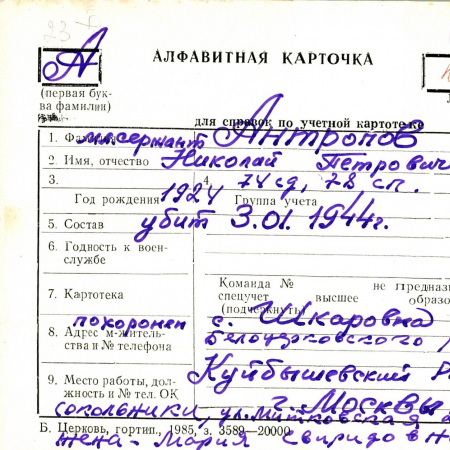 23
А
АЛФАВИТНАЯ КАРТОЧКА
(первая бук-
ва фамилии)
для справок по учетной картотеке
1. Фамилия мл. сержант Антропов
2. Имя, отчество Николай Петрович
3. 4. 74 сд, 78 сп.
Год рождения 1924 Группа учета
5. Состав убит 3.01.1944г.
6. Годность к воен-
службе
Команда № не предназ
7. Картотека спецучет высшее образо
(подчеркнуть)
похоронен с. Шкаровка
8. Адрес м-житель-
ства и № телефона Белоцерковского р
Куйбышевский Р
9. Место работы, дол-
жность и № тел. ОК г. Москвы
сокольники, ул. Митьковская
Б. Церковь, гортип., 1985, з. 3589—20000
жена - Мария Свиридовна